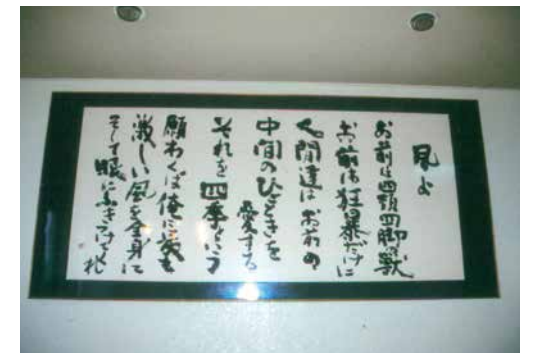 風よ
お前は四頭四脚の獣
お前は狂暴だけに
人間達はお前の
中間のひとときを
愛する
それを四季という
願わくば俺に最も
激しい風を全身に
そして眼にふきつけてくれ